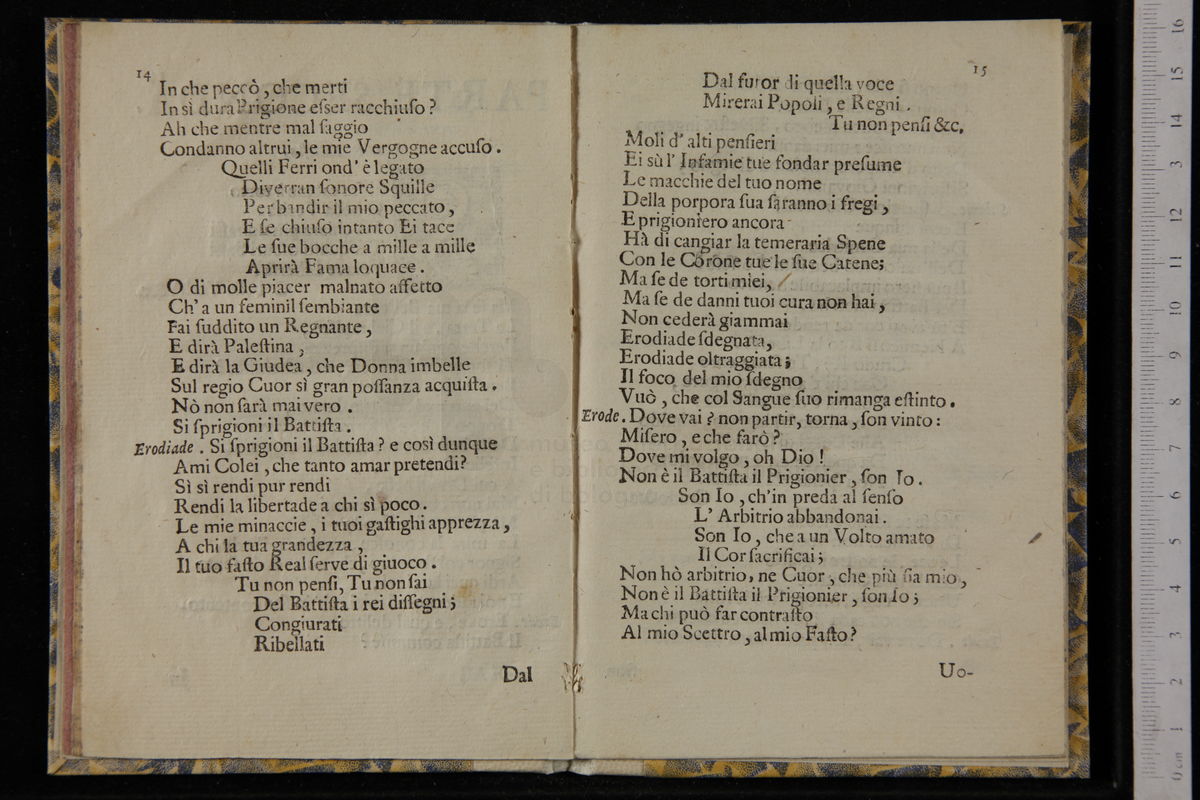 14
In che peccò, che merti
In sì dura Prigione eſser racchiuſo?
Ah che mentre mal ſaggio
Condanno altrui, le mie Vergogne accuſo.
Quelli Ferri ond' è legato
Diverran ſonore Squille
Per bandir il mio peccato,
E ſe chiuſo intanto Ei tace
Le ſue bocche a mille a mille
Aprirà Fama loquace.
O di molle piacer malnato affetto
Ch' a un feminil ſembiante
Fai ſuddito un Regnante,
E dirà Paleſtina,
E dirà la Giudea, che Donna imbelle
Sul regio Cuor sì gran poſſanza acquiſta.
Nò non ſarà mai vero.
Si ſprigioni il Battiſta.
Erodiade. Si ſprigioni il Battiſta? e così dunque
Ami Colei, che tanto amar pretendi?
Sì sì rendi pur rendi
Rendi la libertade a chi sì poco.
Le mie minaccie, i tuoi gaſtighi apprezza,
A chi la tua grandezza,
Il tuo faſto Real ſerve di giuoco.
Tu non penſi, Tu non ſai
Del Battiſta i rei diſſegni;
Congiurati
Ribellati
Dal
15
Dal furor di quella voce
Mirerai Popoli, e Regni.
Tu non penſi &c.
Moli d' alti penſieri
Ei sù l' Infamie tue fondar preſume
Le macchie del tuo nome
Della porpora ſua ſaranno i fregi,
E prigioniero ancora
Hà di cangiar la temeraria Spene
Con le Corone tue le ſue Catene;
Ma ſe de torti miei,
Ma ſe de danni tuoi cura non hai,
Non cederà giammai
Erodiade ſdegnata,
Erodiade oltraggiata;
Il foco del mio ſdegno
Vuò, che col Sangue ſuo rimanga eſtinto.
Erode. Dove vai? non partir, torna, ſon vinto:
Miſero, e che farò?
Dove mi volgo, oh Dio!
Non è il Battiſta il Prigionier, ſon Io.
Son Io, ch'in preda al ſenſo
L' Arbitrio abbandonai.
Son Io, che a un Volto amato
Il Cor ſacrificai;
Non hò arbitrio, ne Cuor, che più ſia mio,
Non è il Battiſta il Prigionier, ſon Io;
Ma chi può far contraſto
Al mio Scettro, al mio Faſto?
Uo-
0 cm 1 2 3 4 5 6 7 8 9 10 11 12 13 14 15 16